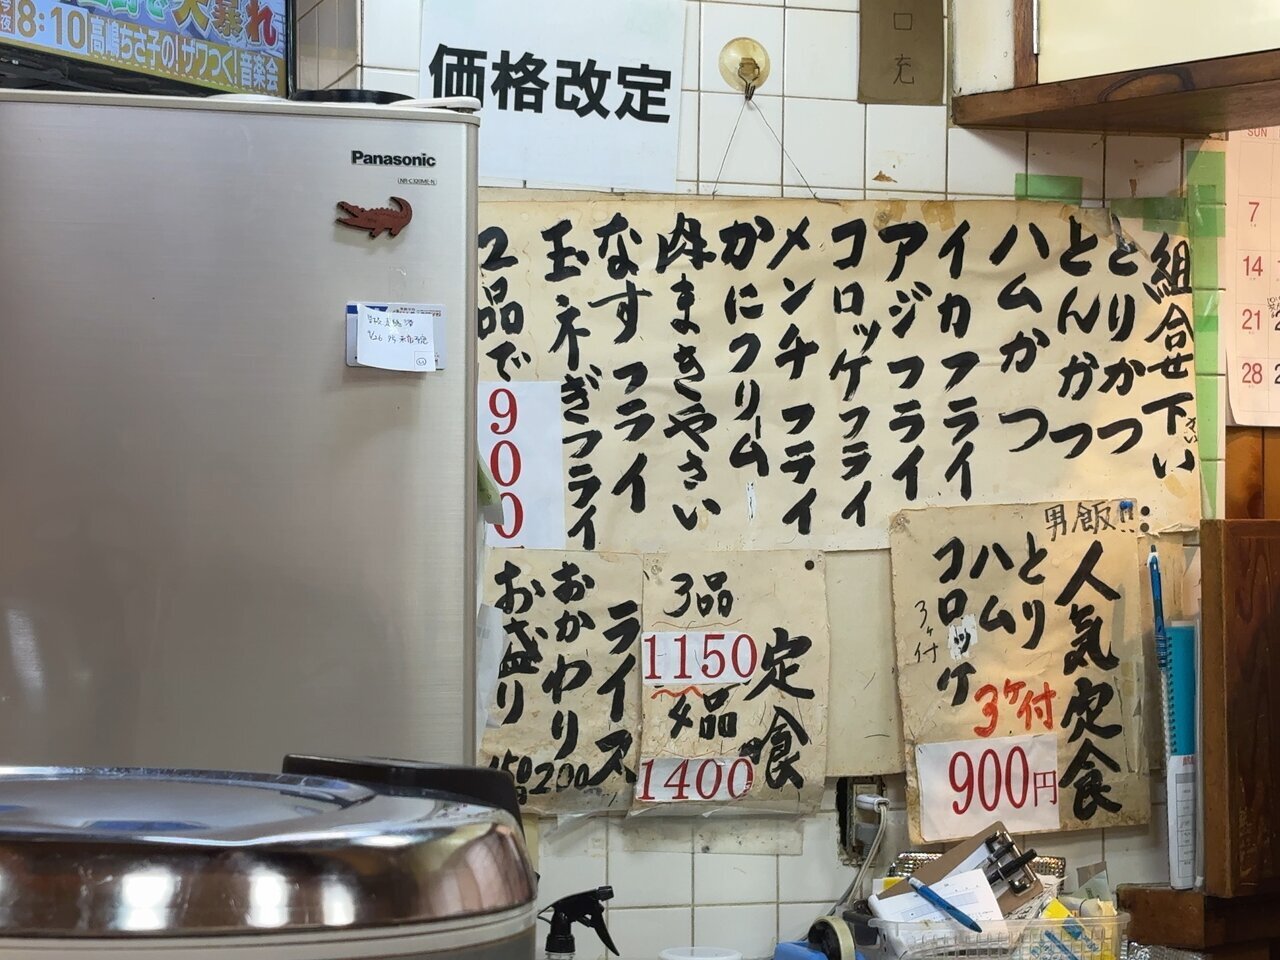 8:10高嶋ちさ子の!ザワつく!音楽会
価格改定
Panasonic
口充
組合せ下さい
とりかつ
とんかつ
ハムかつ
イカフライ
アジフライ
コロッケフライ
メンチフライ
かにクリーム
肉まきやさい
なすフライ
玉ネぎフライ
2品で
900
男飯!!
人気定食
とり
ハム
コロッケ
3ヶ付
3ヶ付
900円
定食
3品
1150
4品
1400
ライス
おかわり200
お盛り150
SUN
7
14
21
28